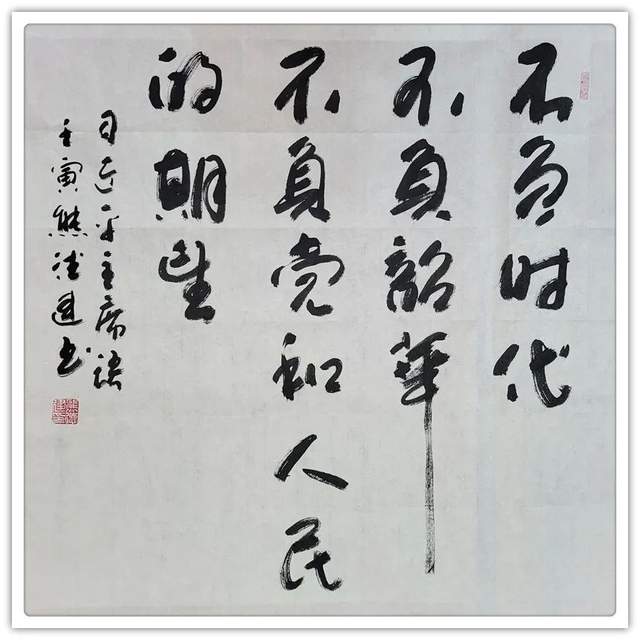 不负时代
不负韶华
不负党和人民
的期望
习近平主席语
壬寅熊德进书